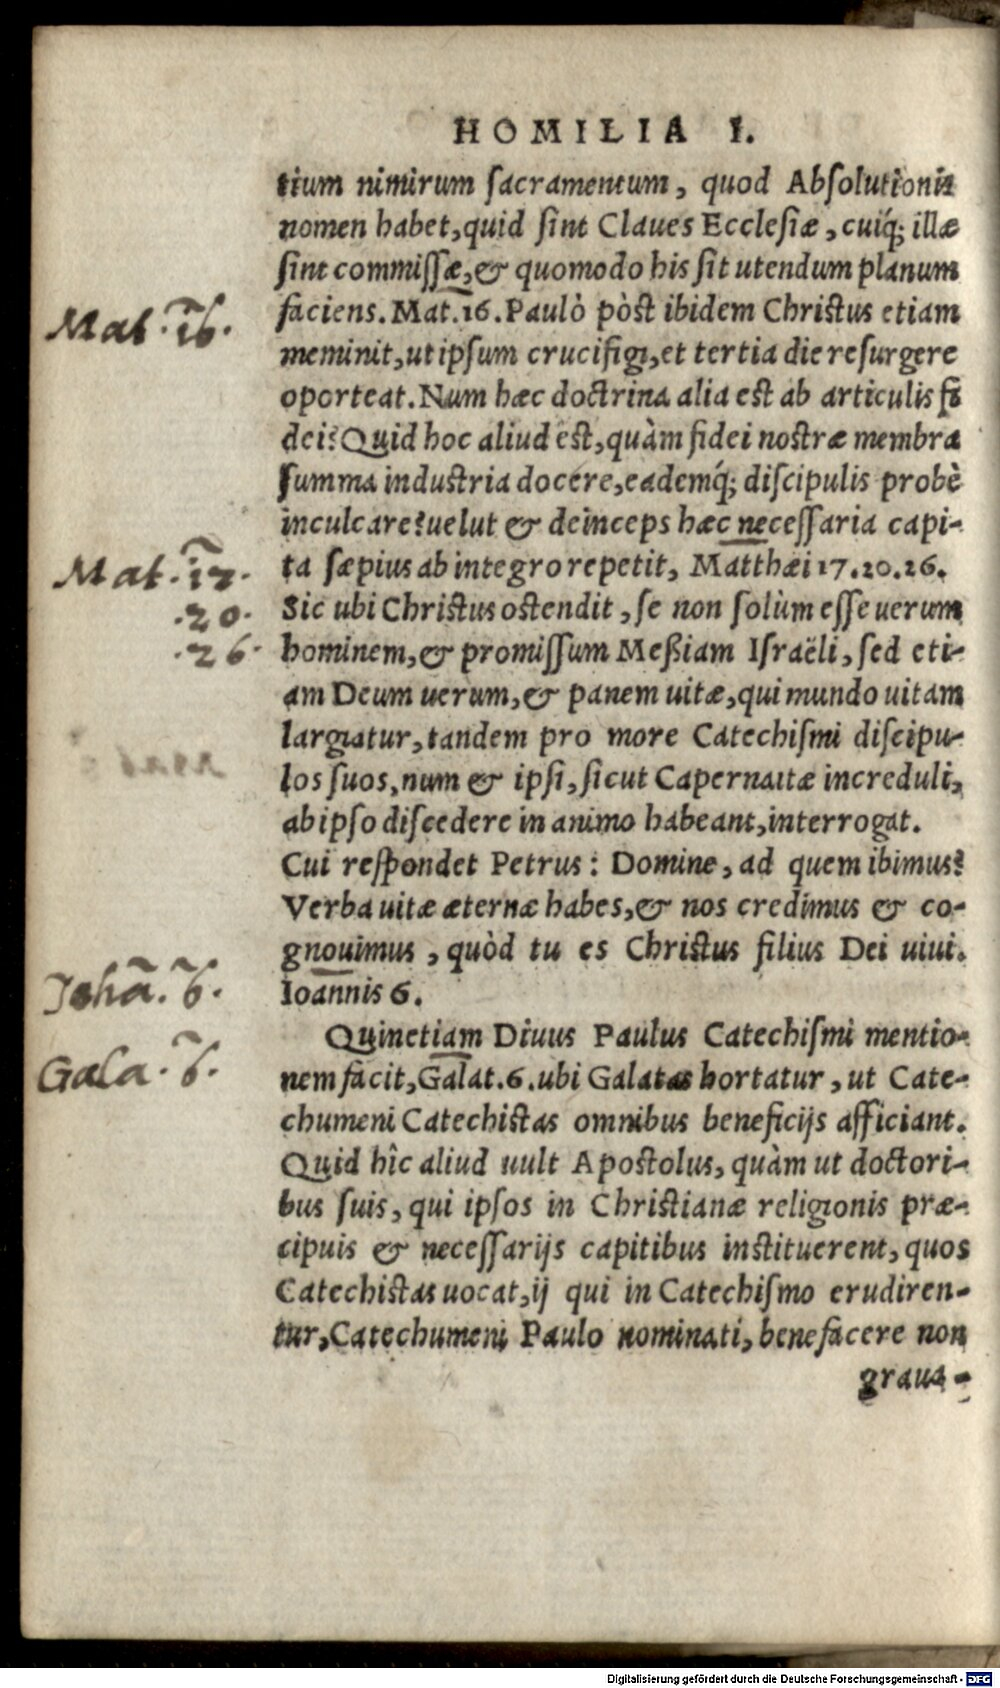 HOMILIA I.
tium nimirum sacramentum, quod Absolutionis
nomen habet, quid sint Claues Ecclesiæ, cuiq́; illæ
sint commissæ, & quomodo his sit utendum planum
faciens. Mat. 16. Paulò pòst ibidem Christus etiam
Mat. 16.
meminit, ut ipsum crucifigi, et tertia die resurgere
oporteat. Num hæc doctrina alia est ab articulis fi
dei? Quid hoc aliud est, quàm fidei nostræ membra
summa industria docere, eademq́; discipulis probè
inculcare? uelut & deinceps hæc necessaria capi-
ta sæpius ab integro repetit, Matthæi 17. 20. 26.
Mat. 17.
.20.
.26.
Sic ubi Christus ostendit, se non solùm esse uerum
hominem, & promissum Meßiam Israëli, sed eti-
am Deum uerum, & panem uitæ, qui mundo uitam
largiatur, tandem pro more Catechismi discipu-
los suos, num & ipsi, sicut Capernaitæ increduli,
ab ipso discedere in animo habeant, interrogat.
Cui respondet Petrus: Domine, ad quem ibimus?
Verba uitæ æternæ habes, & nos credimus & co-
gnouimus, quòd tu es Christus filius Dei uiui.
Ioannis 6.
Johā. 6.
Quinetiam Diuus Paulus Catechismi mentio-
nem facit, Galat. 6. ubi Galatas hortatur, ut Cate-
Gala. 6.
chumeni Catechistas omnibus beneficijs afficiant.
Quid hîc aliud uult Apostolus, quàm ut doctori-
bus suis, qui ipsos in Christianæ religionis præ-
cipuis & necessarijs capitibus instituerent, quos
Catechistas uocat, ij qui in Catechismo erudiren-
tur, Catechumeni Paulo nominati, benefacere non
graua-
Digitalisierung gefördert durch die Deutsche Forschungsgemeinschaft - DFG